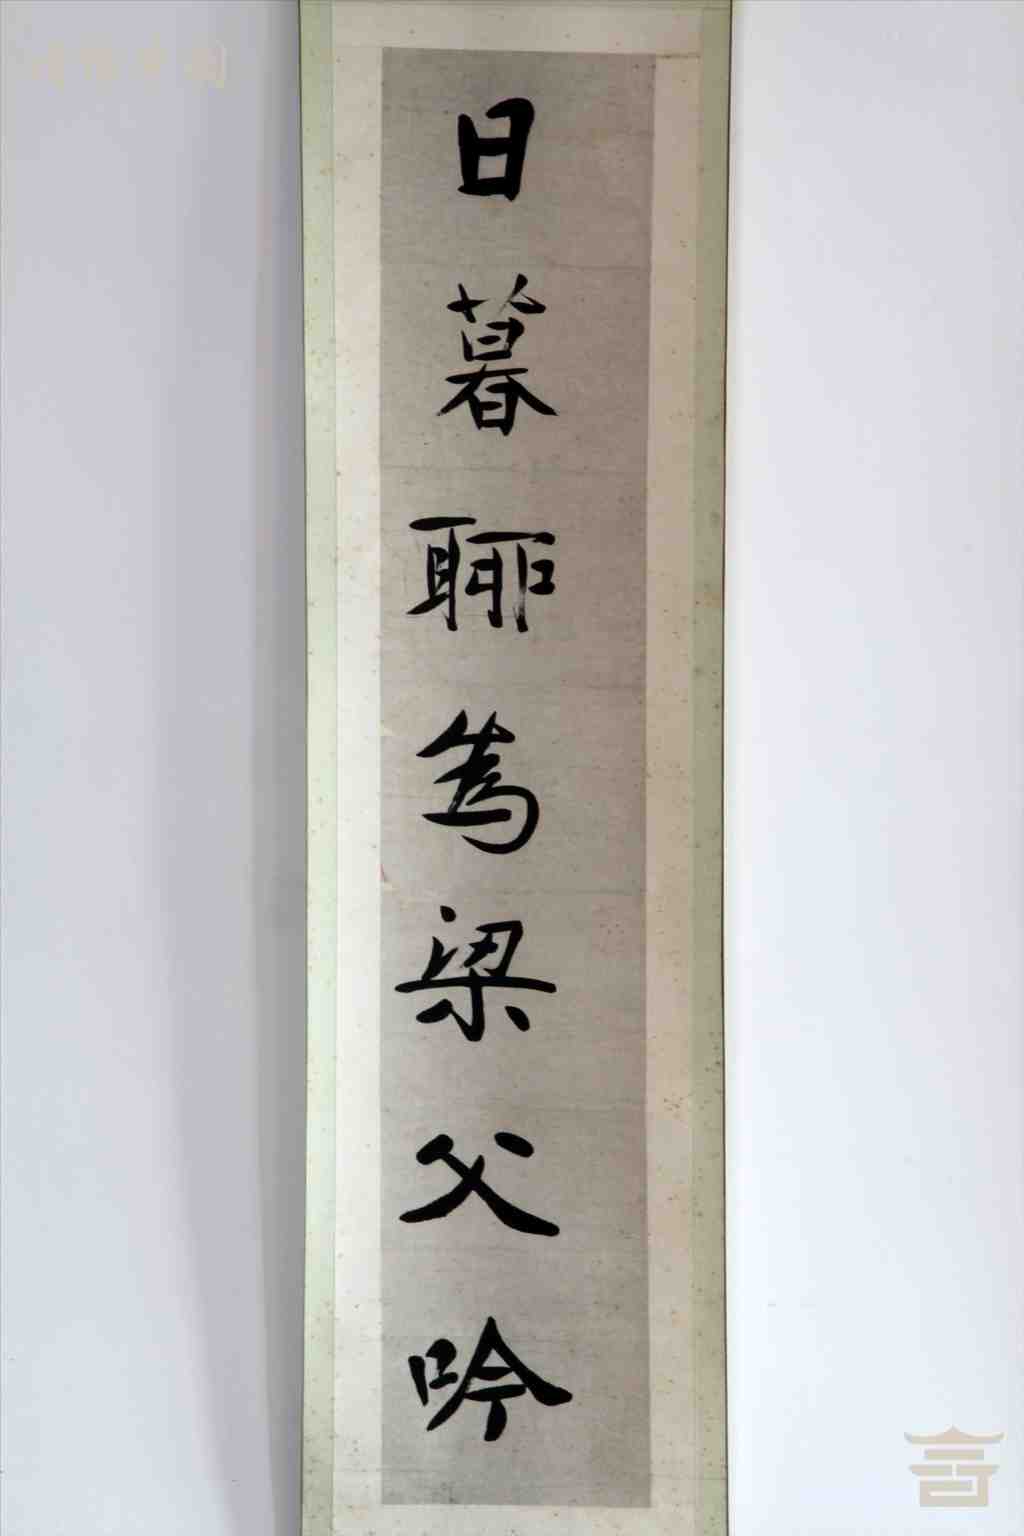 日暮聊為梁父吟